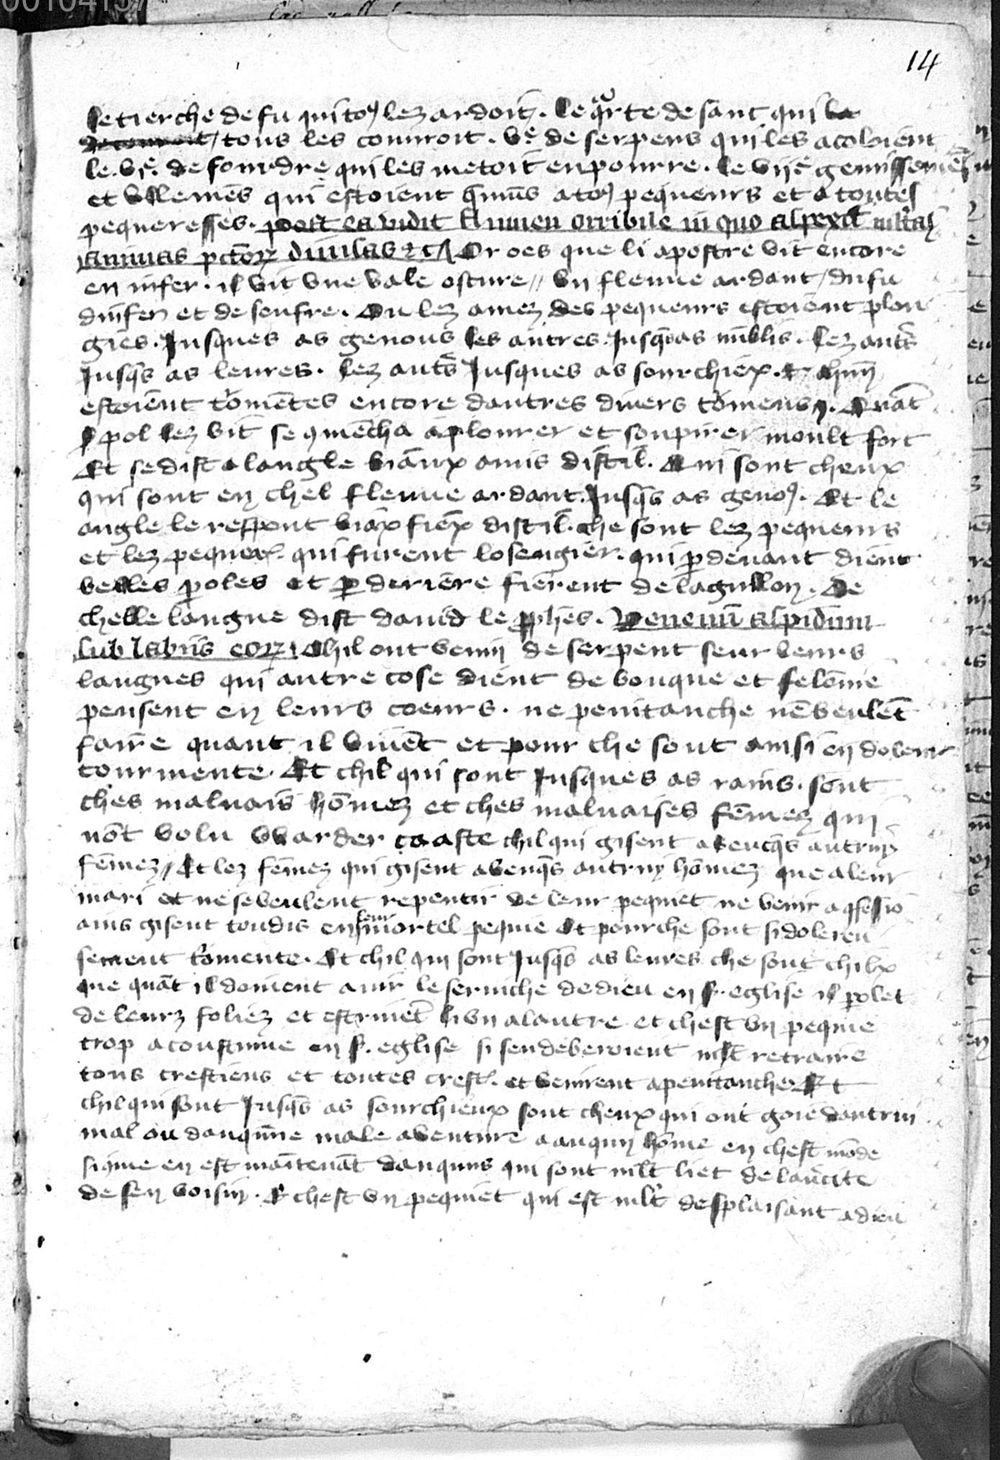 00104137
14
le tierche de fu qui toꝯ lez ardoit. le qarte de sanc qui le
le couuroit / tous les couuroit. Ve. de serpens qui les acoloient
le .vie. de fourdre qui les metoit en pourre. le vije gemissemēs
et vllemēs qui estoient qmuns a toꝯ pequeurs et a toutes
pequeresses. post ea vidit flumen orribile in quo aspexit mltas
animas pctorꝝ diuisas etc / Or oes que li apostre vit encore
en infer. il vit vne vale oscure // vn fleuue ardant / du fu
dinfer et de soufre. Ou lez amez des pequeurs estoient plon
gies. Jusques as genous les autres. Jusqs as nūblis. lez autˢ
Jusqs as leures. lez autˢ Jusques as sourchiex. Et chūn
estoient tōmentes encore dautres diuers tōmens. Quāt
s pol lez vit se qmēcha a plourer et soupirer moult fort
Et se dist a langle biaux amis dist il. Qui sont cheux
qui sont en chel fleuue ardant. Jusqs as genoꝯ. Et le
angle le respont biax fiex dist il. che sont lez pequeurs
et lez pequer. qui furent losengier. qui p deuant dient
belles poles et p deriere fierent de laguillon. De
chelle langue dist dauid le pphes. Venenū aspidum
sub labiis eorꝝ / Chil ont venin de serpent seur leurs
langues qui autre cose dient de bouque et felonie
pensent en leurs coeurs. ne penitanche ne veulēt
faire quant il viuēt et pour che sont ainsi en doleur
tourmente. Et chil qui sont Jusques as rains. sont
ches maluais hōmez et ches maluaises fēmez qui
nōt volu warder caaste chil qui gisent aveucqs autruy
fēmez / Et lez fēmez qui gisent aveuqs autruy hōmez que a leur
mari et ne se veulent repentir de leur pequiet ne venir a qfessio
ains gisent toudis en leur mortel pequie Et pourche sont si dolereu
sement tōmente. Et chil qui sont Jusqs as leures che sont chilx
que quāt il doiuent auir le seruiche de dieu en s. eglise il polet
de leurz foliez et estriuēt lun a lautre et chest vn pequie
trop acoustume en s. eglise si sen deberoient mlt retraire
tous crestiens et toutes crest. et venirent a penitanche Et
chil qui sont Jusqs as sourchieux sont cheux qui ont goie dautrui
mal ou dauqune male auenture a auqun hōme en chest mōde
sique en est maītenāt dauquns qui sont mlt liet de lauersite
de sen voisin. Et chest vn pequiet qui est mlt desplaisant a dieu